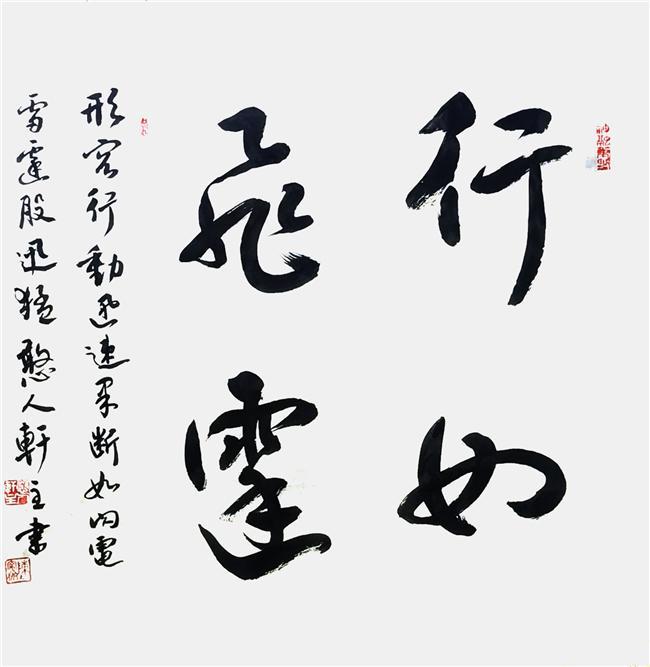 行如
飛霆
形容行動迅速果断如闪電
雷霆般迅猛憨人軒主書